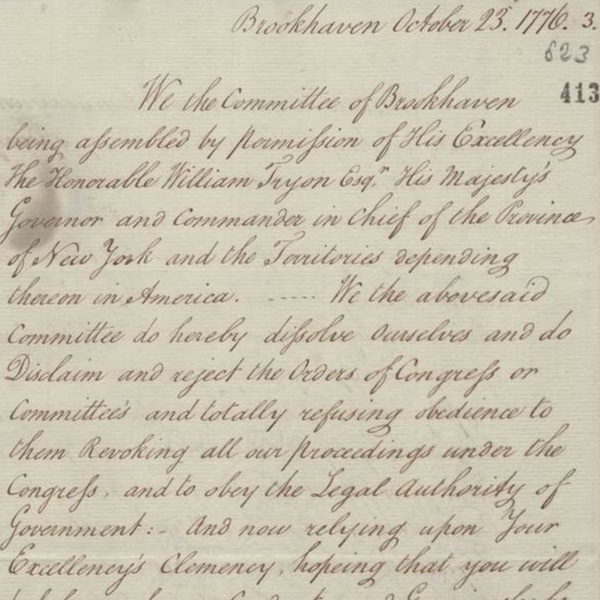 Brookhaven October 23. 1776. 3.
623
413
We the Committee of Brookhaven
being assembled by permission of His Excellency
The Honorable William Tryon Esqr. His Majesty's
Governor and Commander in Chief of the Province
of New York and the Territories depending
thereon in America. ----- We the abovesaid
Committee do hereby dissolve ourselves and do
Disclaim and reject the Orders of Congress or
Committee's and totally refusing obedience to
them Revoking all our proceedings under the
Congress, and to obey the Legal Authority of
Government:- And now relying upon Your
Excellency's Clemency, hopeing that you will